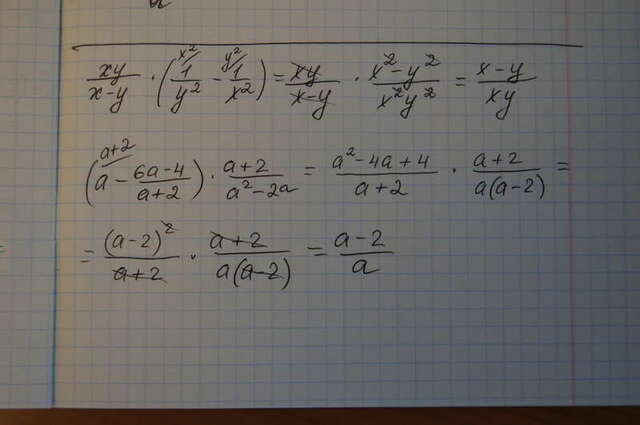 xy/(x-y) · (x²/ 1/y² - y²/ 1/x²) = xy/(x-y) · (x²-y²)/(x²y²) = (x-y)/(xy)
(a+2/ a - (6a-4)/(a+2)) · (a+2)/(a²-2a) = (a²-4a+4)/(a+2) · (a+2)/(a(a-2)) =
= (a-2)²/(a+2) · (a+2)/(a(a-2)) = (a-2)/a